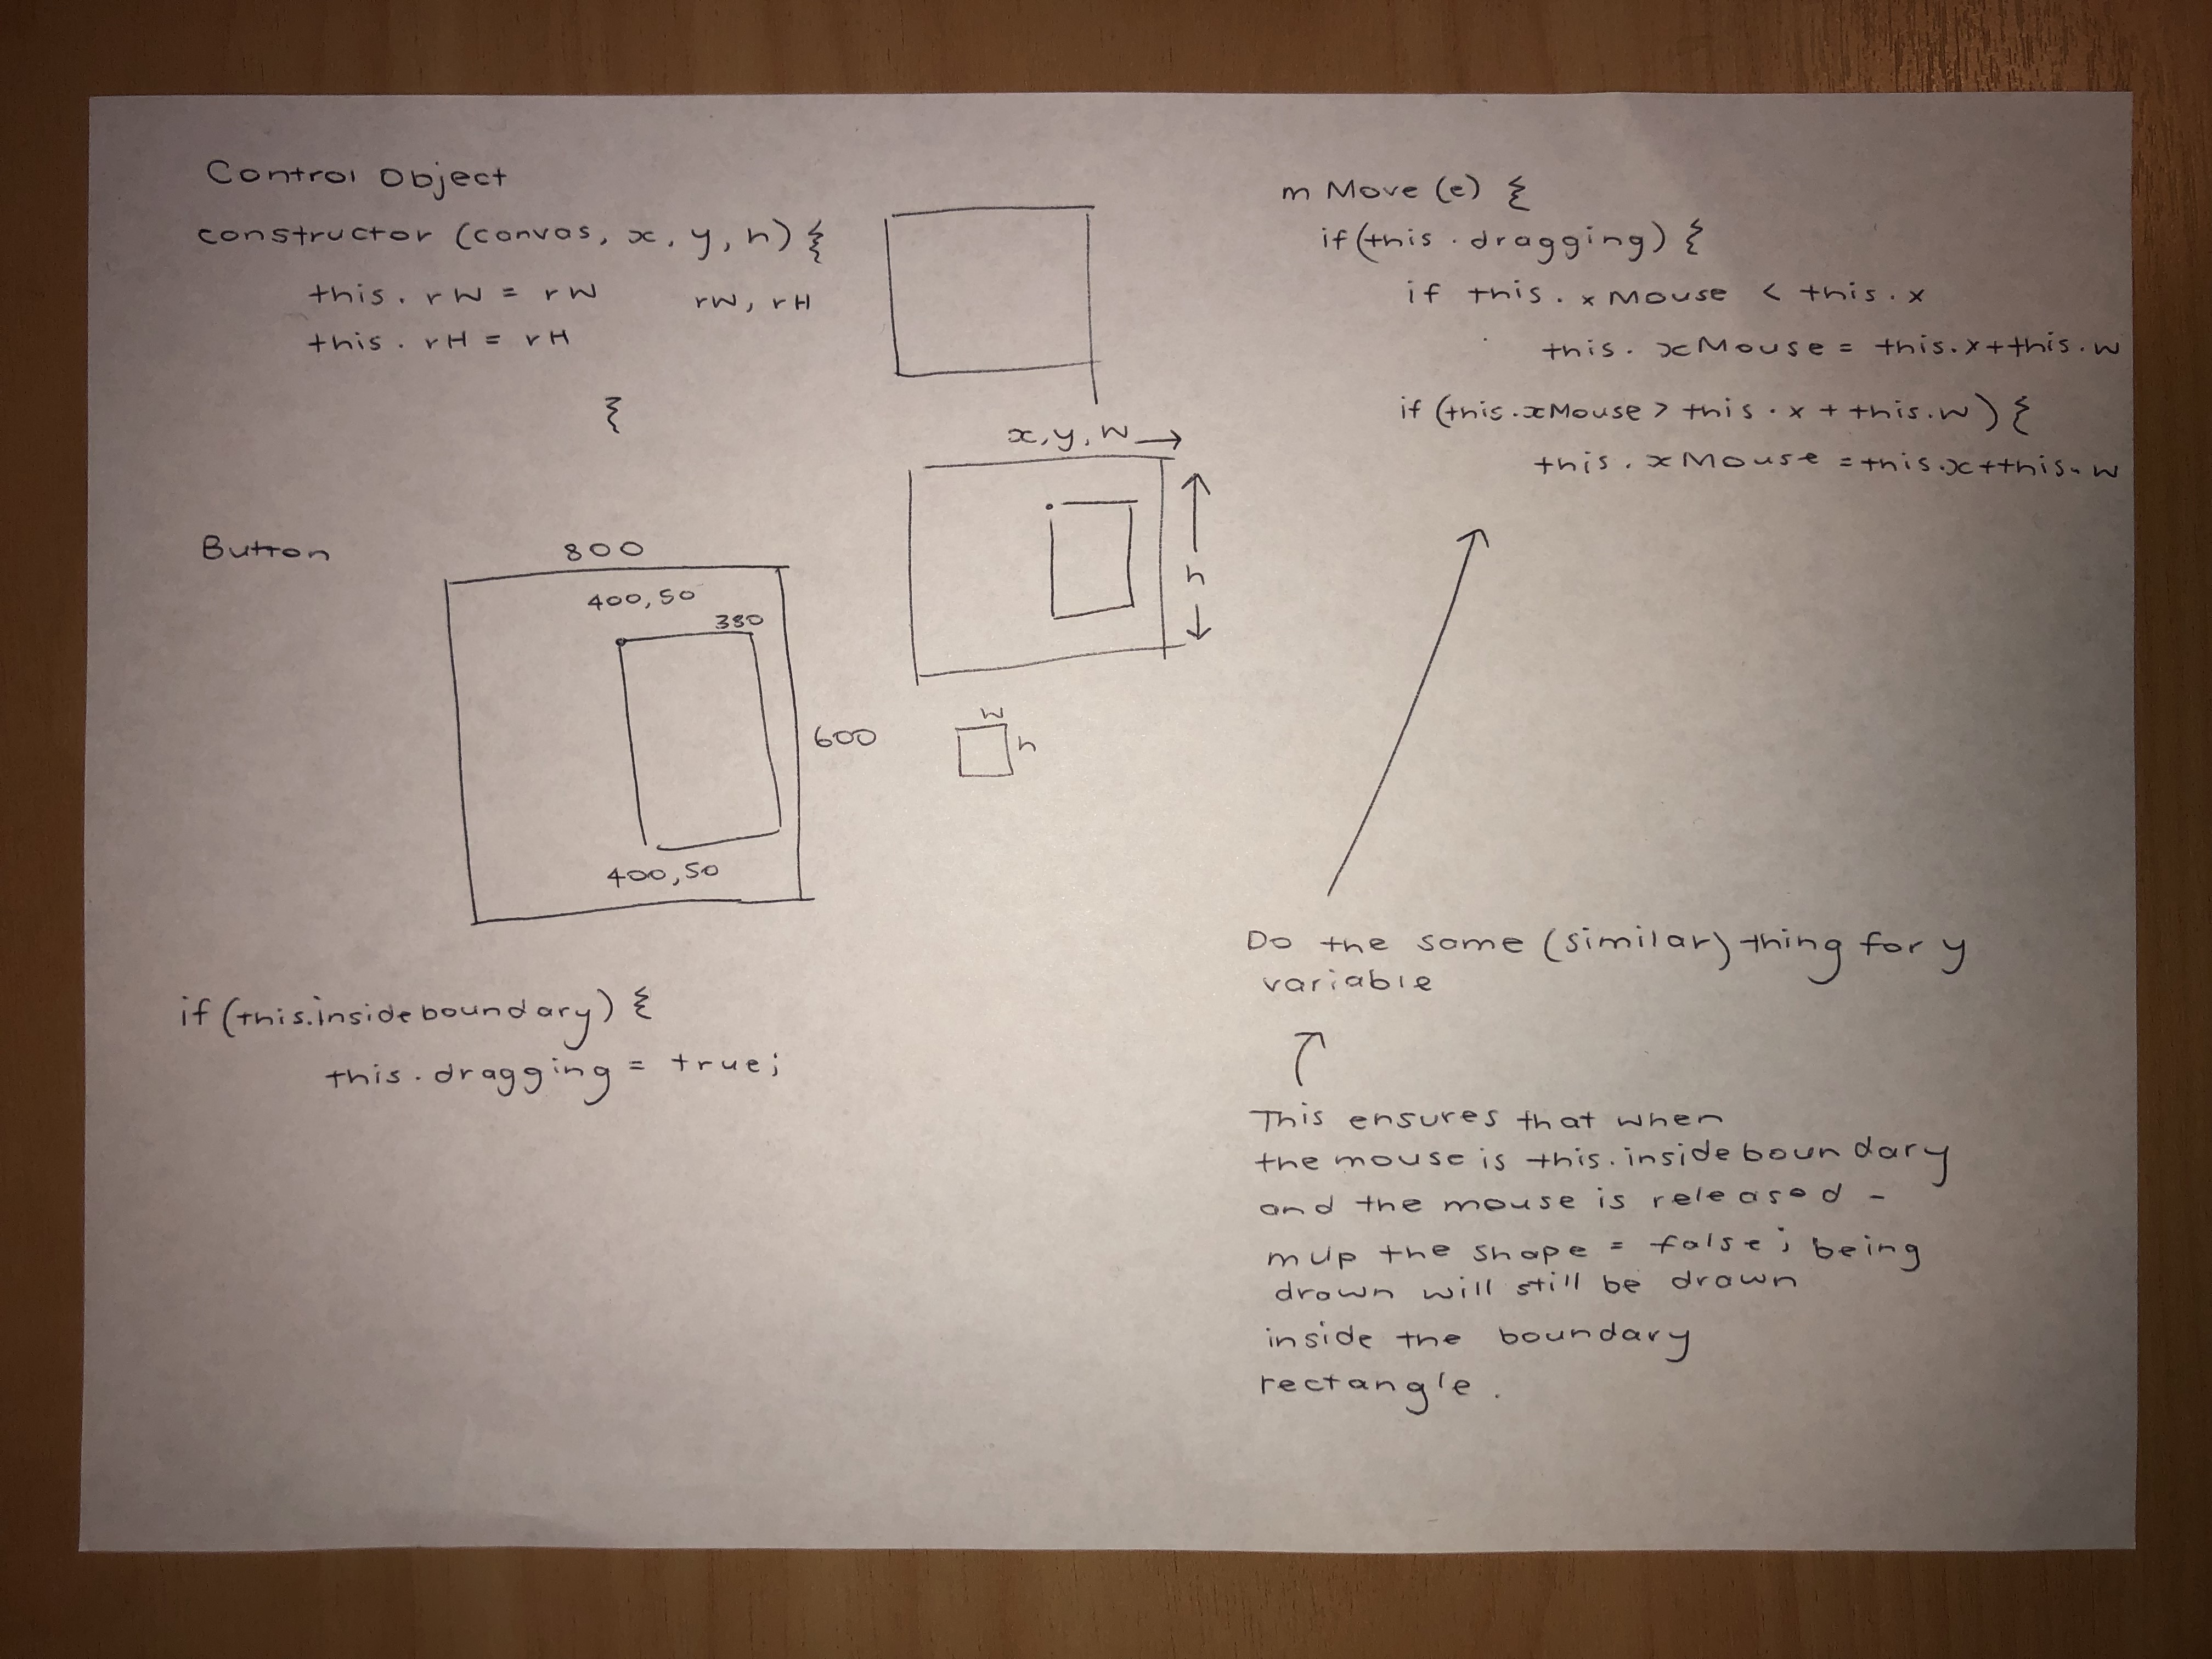 Control Object
constructor (canvas, x, y, h) {
this.rW = rW
rW, rH
this.rH = rH
}
Button
800
400,50
380
600
400,50
if (this.insideboundary) {
this.dragging = true;
x, y, w
h
w
h
mMove (e) {
if (this.dragging) {
if this.xMouse < this.x
this.xMouse = this.x + this.w
if (this.xMouse > this.x + this.w) {
this.xMouse = this.x + this.w
Do the same (similar) thing for y
variable
This ensures that when
the mouse is this.insideboundary
and the mouse is released -
mUp the shape = false; being
drawn will still be drawn
inside the boundary
rectangle.